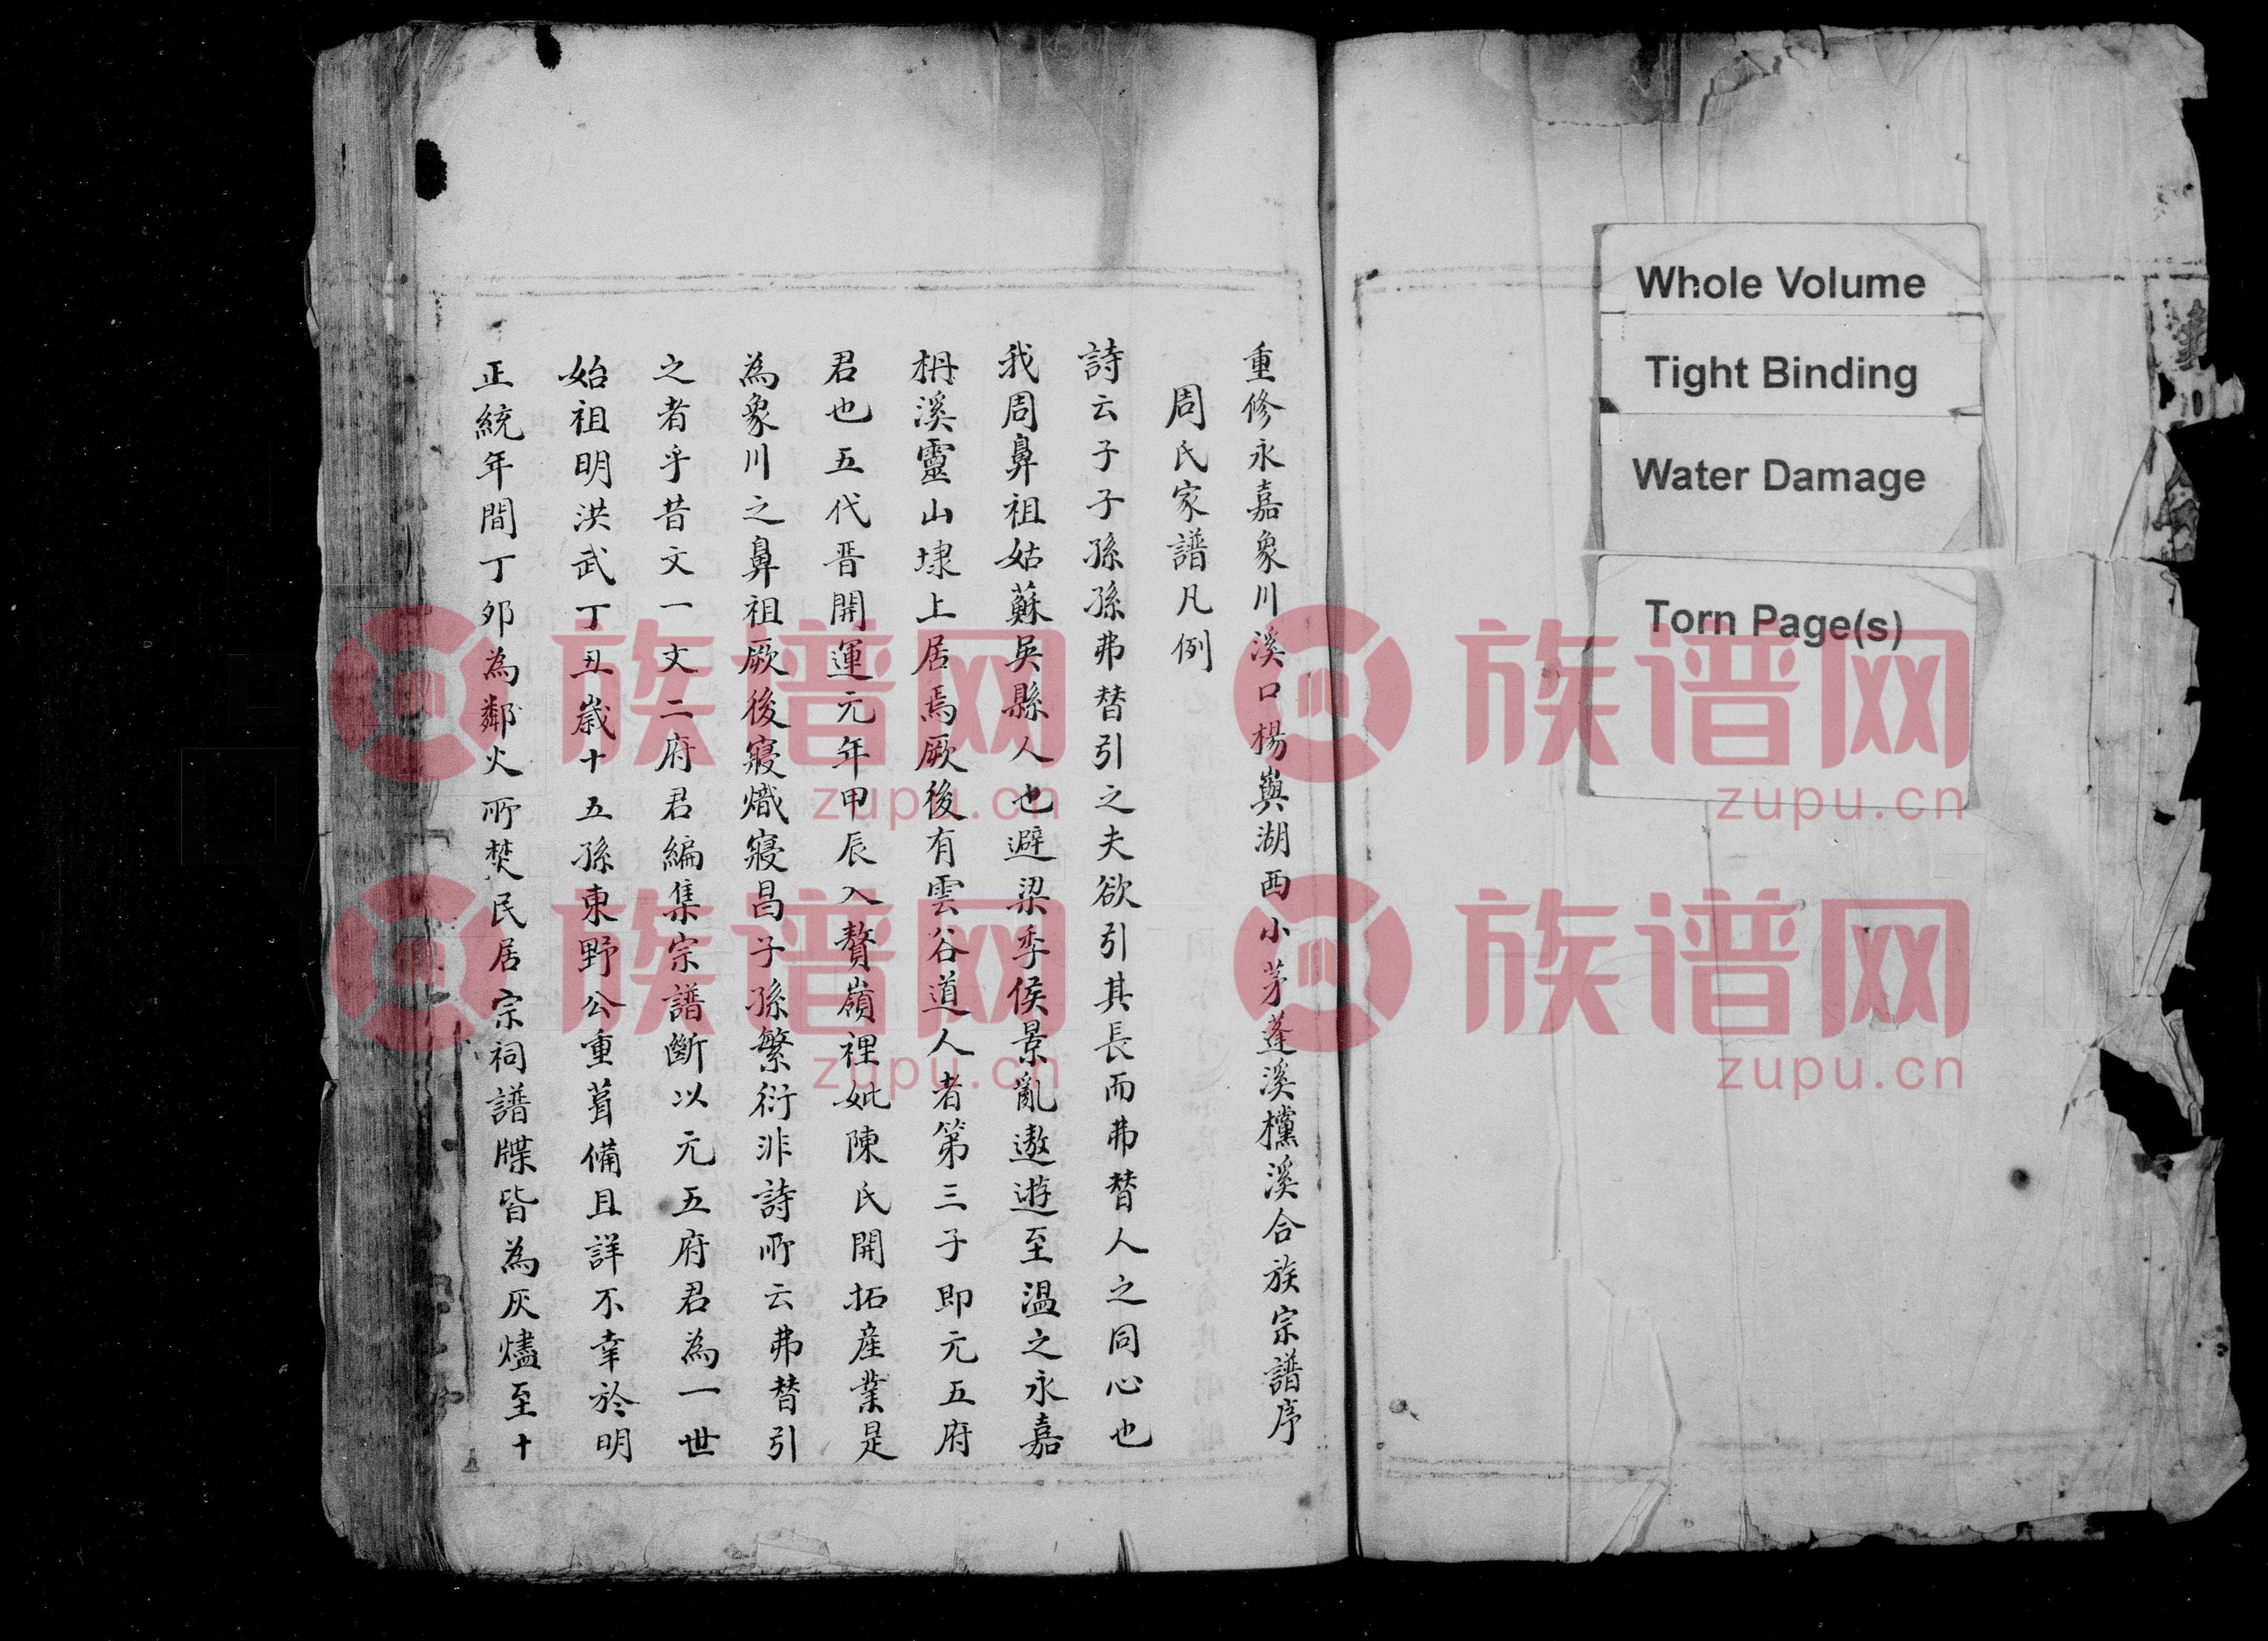 重修永嘉象川溪口楊㠘湖西小茅蓬溪欓溪合族宗譜序
周氏家譜凡例
詩云子子孫孫弗替引之夫欲引其長而弗替人之同心也
我周鼻祖姑蘇吳縣人也避梁季侯景亂遨遊至溫之永嘉
枏溪靈山埭上居焉厥後有雲谷道人者第三子即元五府
君也五代晋開運元年甲辰入贅嶺裡妣陳氏開拓産業是
為象川之鼻祖厥後寢熾寢昌子孫繁衍非詩所云弗替引
之者乎昔文一文二府君編集宗譜斷以元五府君為一世
始祖明洪武丁丑歲十五孫東野公重葺備且詳不幸於明
正統年間丁夘為鄰火所焚民居宗祠譜牒皆為灰燼至十
Whole Volume
Tight Binding
Water Damage
Torn Page(s)
族谱网
zupu.cn
族谱网
zupu.cn
族谱网
zupu.cn
族谱网
zupu.cn